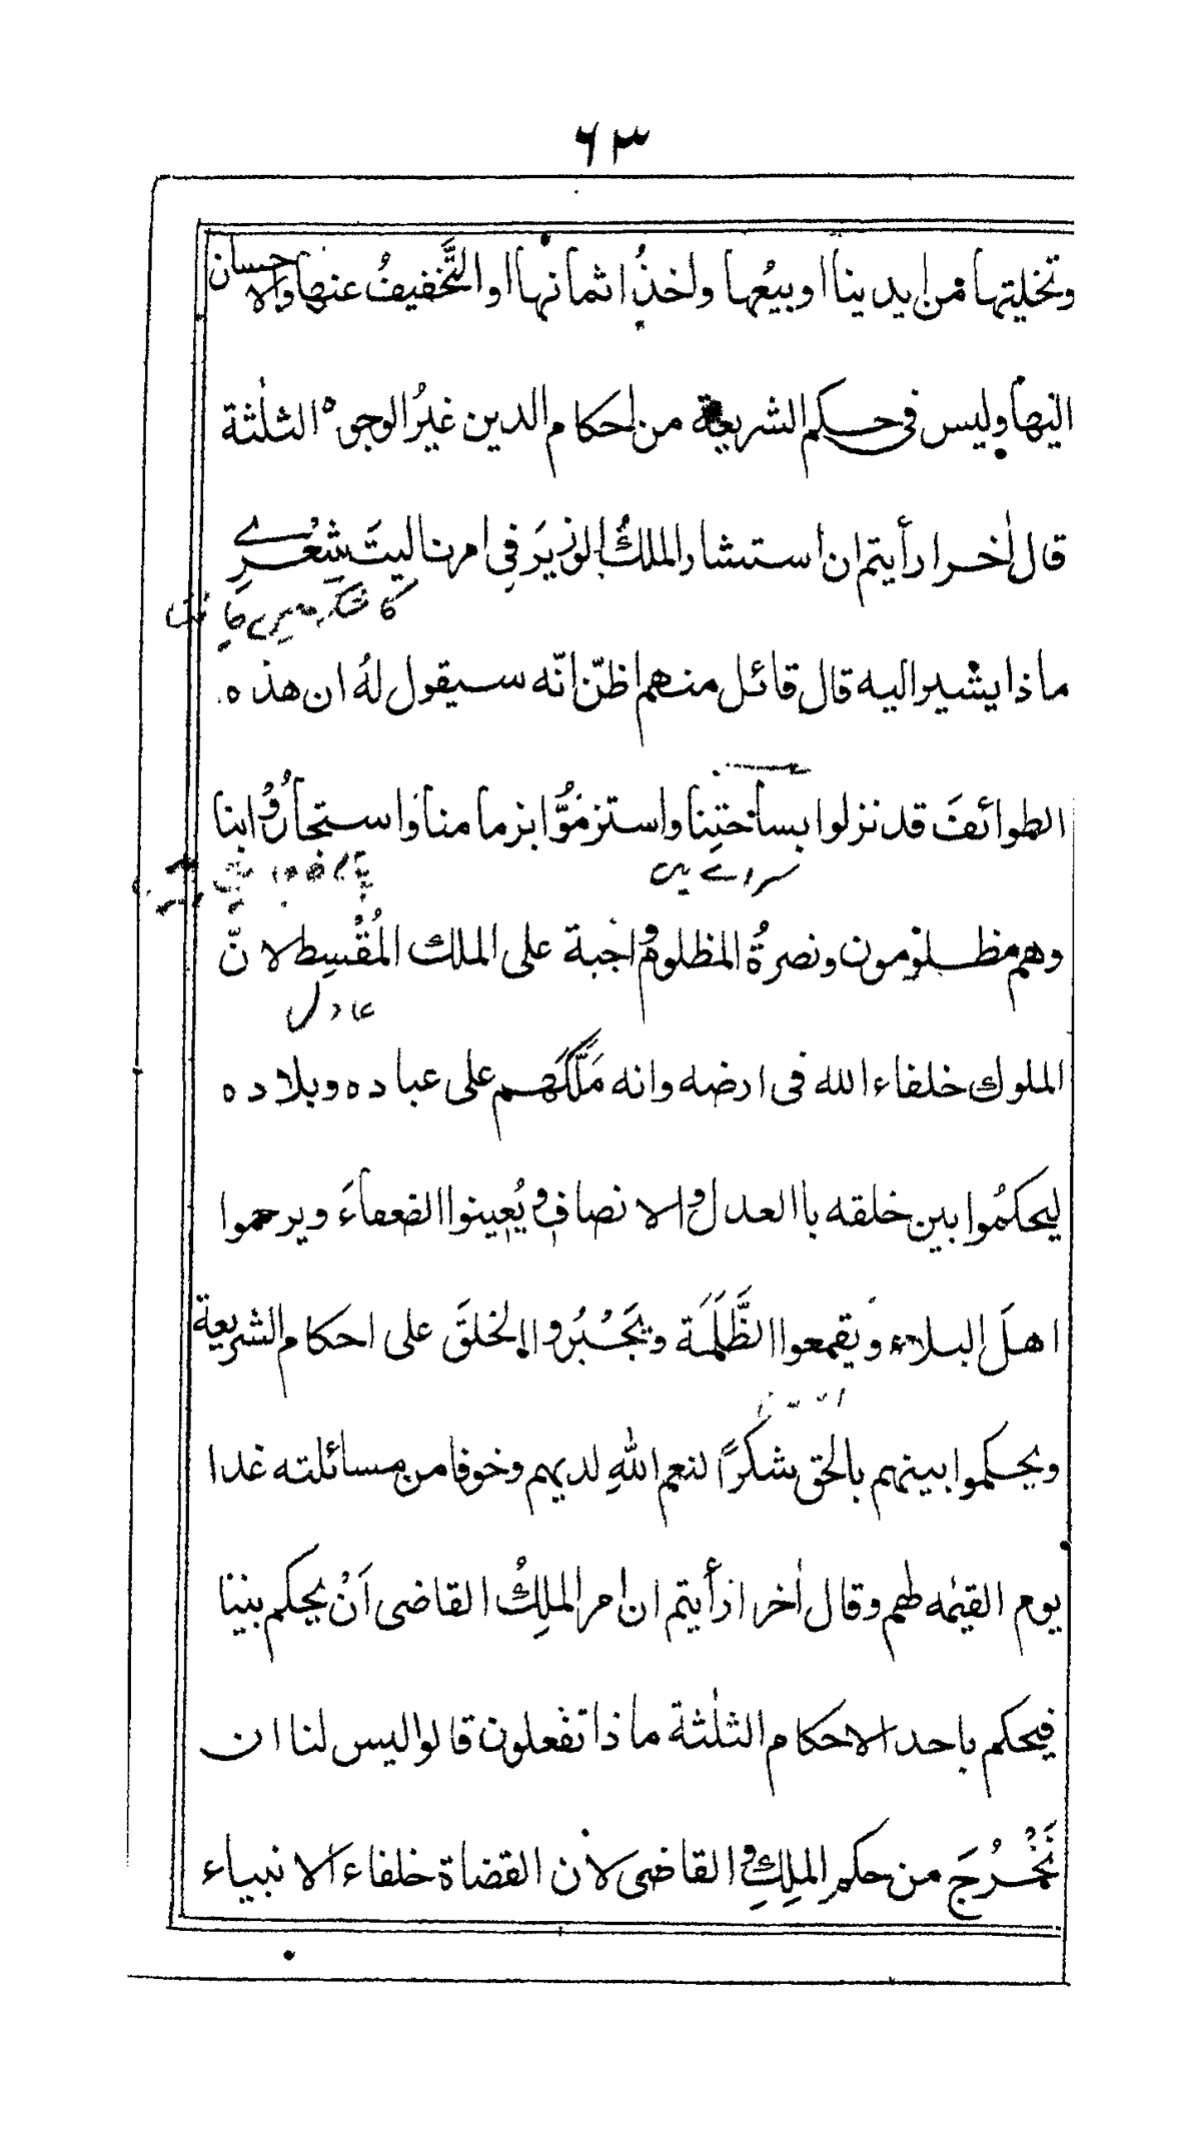 ٦٣
وتخليتها من ايدينا او بيعُها واخذُ اثمانها او التَّخفيفُ عنها والاحسان
اليها وليس فى حكم الشريعة من احكام الدين غيرُ الوجوه الثلٰثة
قال اٰخر ارأيتم ان استشار الملكُ الوزيرَ فى امرنا ليتَ شِعْرِے
ماذا يشير اليه قال قائل منهم اظنّ انّه سيقول لهُ ان هذه
الطوائفَ قد نزلوا بساحتِنا واستزمُّوا بزمامنا واستجارُوا بنا
سراے میں
وهم مظلومون ونصرةُ المظلوم واجبة على الملك المُقْسِط لانّ
عادل
الملوك خلفاء الله فى ارضه وانه مَلَّكَهم على عباده وبلاده
ليحكمُوا بين خلقه باالعدل والانصاف ويُعِينوا الضعفاءَ ويرحموا
اهلَ البلاء ويقمعوا الظَّلَمَة ويَجْبُرُوا الخلقَ على احكام الشريعة
ويحكموا بينهم بالحق شكرًا لنعم اللهِ لديهم وخوفا من مسائلته غدا
يوم القيٰمه لهم وقال اٰخر ارأيتم ان امر الملِكُ القاضى اَنْ يحكم بيننا
فيحكم باحد الاحكام الثلٰثة ماذا تفعلون قالوا ليس لنا ان
نَخْرُجَ من حكم الملِكِ والقاضى لان القضاة خلفاء الانبياء